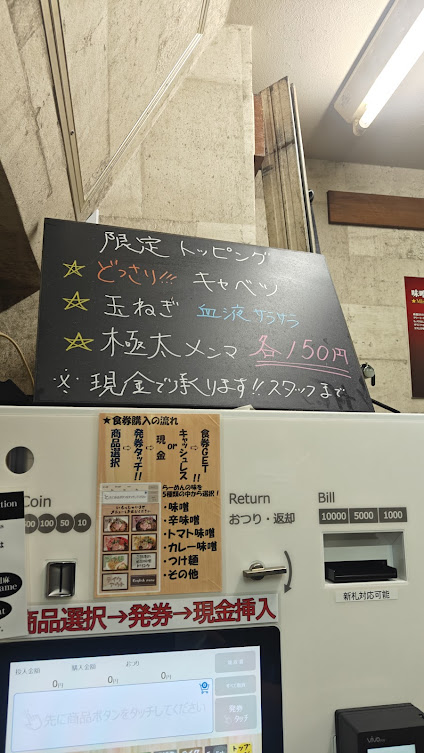 限定 トッピング
☆ どっさり!!! キャベツ
☆ 玉ねぎ 血液サラサラ
☆ 極太メンマ 各150円
※ 現金で承ります!! スタッフまで
★食券購入の流れ
商品選択
⇨
発券タッチ!!
⇨
現金
or
キャッシュレス
⇨
食券GET!!
らーめんの味を
5種類の中から選択!
・味噌
・辛味噌
・トマト味噌
・カレー味噌
・つけ麺
・その他
Coin
500 100 50 10
Return
おつり・返却
Bill
10000 5000 1000
新札対応可能
商品選択→発券→現金挿入
投入金額 購入金額 おつり
0円 0円 0円
先に商品ボタンをタッチしてください
発券
タッチ
トップ
味噌